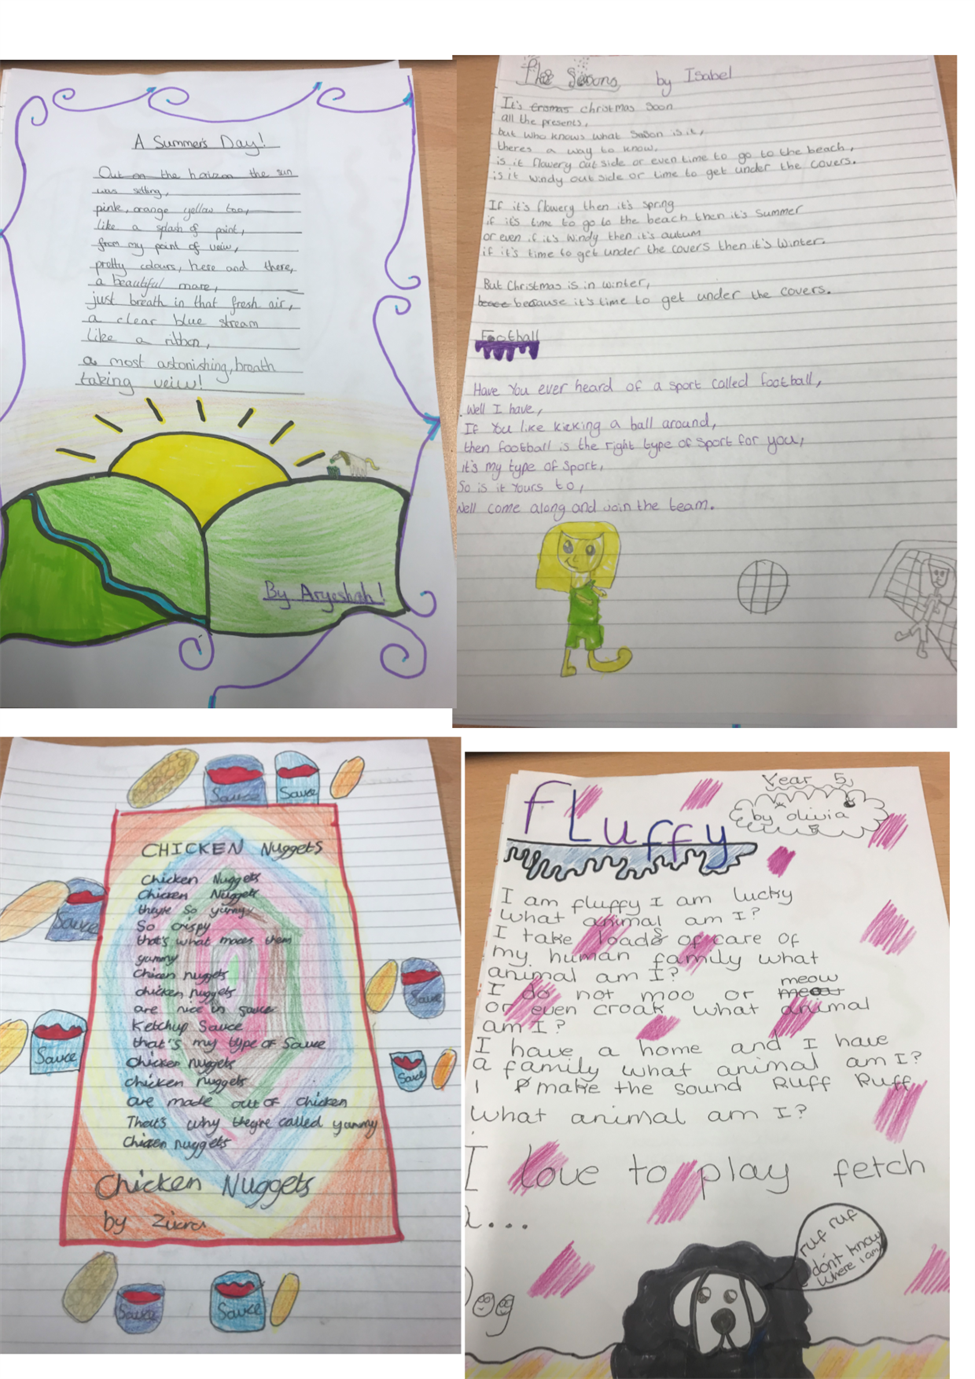 A Summer's Day!
Out on the horizon the sun
was setting,
pink, orange yellow too,
like a splash of paint,
from my point of veiw,
pretty colours, here and there,
a beautiful mare,
just breath in that fresh air,
a clear blue stream
Like a ribbon,
a most astonishing, breath
taking veiw!
By Aryeshah!
The Sesons by Isabel
It's cromas christmas soon
all the presents,
but who knows what sason is it,
theres a way to know,
is it flowery out side or even time to go to the beach,
is it windy out side or time to get under the covers.
If it's flowery then it's spring
if it's time to go to the beach then it's summer
or even if it's windy then it's autum
if it's time to get under the covers then it's winter.
But Christmas is in winter,
because it's time to get under the covers.
Football
Have You ever heard of a sport called football,
Well I have,
If You like kicking a ball around,
then football is the right type of sport for you,
it's my type of sport,
So is it Yours to,
Well come along and Join the team.
Sauce
Sauce
CHICKEN Nuggets
Chicken Nuggets
Chicken Nuggets
they're So yumy
So crispy
that's what maces them
yummy
Chicen nuggets
chicken nuggets
are nice in sauce
Ketchup Sauce
that's my type of Sauce
Chicken nuggets
chicken nuggets
are made out of chicken
Thats why theyre called yummy
Chicen nuggets
Chicken Nuggets
by Zikra
Sauce
Sauce
Sauce
Sauce
Sauce
Sauce
fLuffy
Year 5
by olivia
I am fluffy I am lucky
what animal am I?
I take loads of care of
my human family what
animal am I?
meow
I do not moo or meow
or even croak what animal
am I?
I have a home and I have
a family what animal am I?
I make the sound Ruff Ruff
what animal am I?
I love to play fetch
...
Dog
ruf ruf
I don't know
where I am!